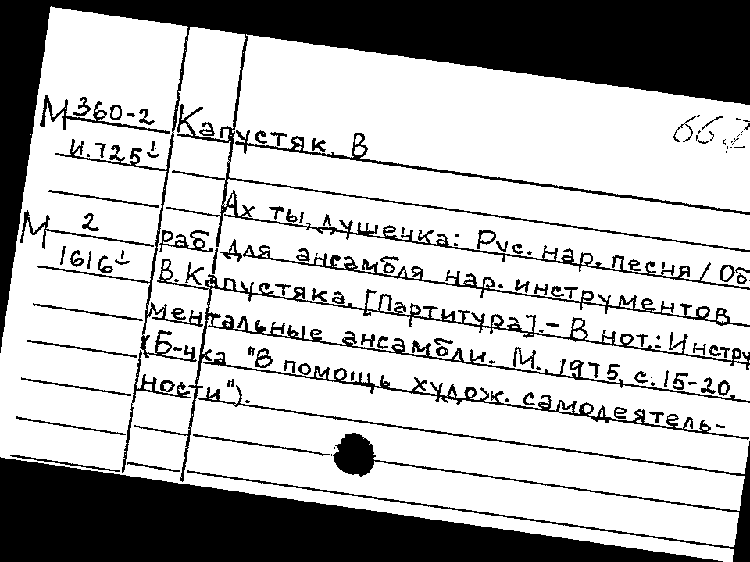 М 360-2 Капустяк. В 66.2
И.725↓
Ах ты, душечка: Рус. нар. песня / Об
М 2 раб. для ансамбля нар. инструментов
1616↓ В. Капустяка. [Партитура]. - В нот.: Инстру
ментальные ансамбли. М., 1975, с. 15-20.
(Б-чка "В помощь худож. самодеятель-
ности").